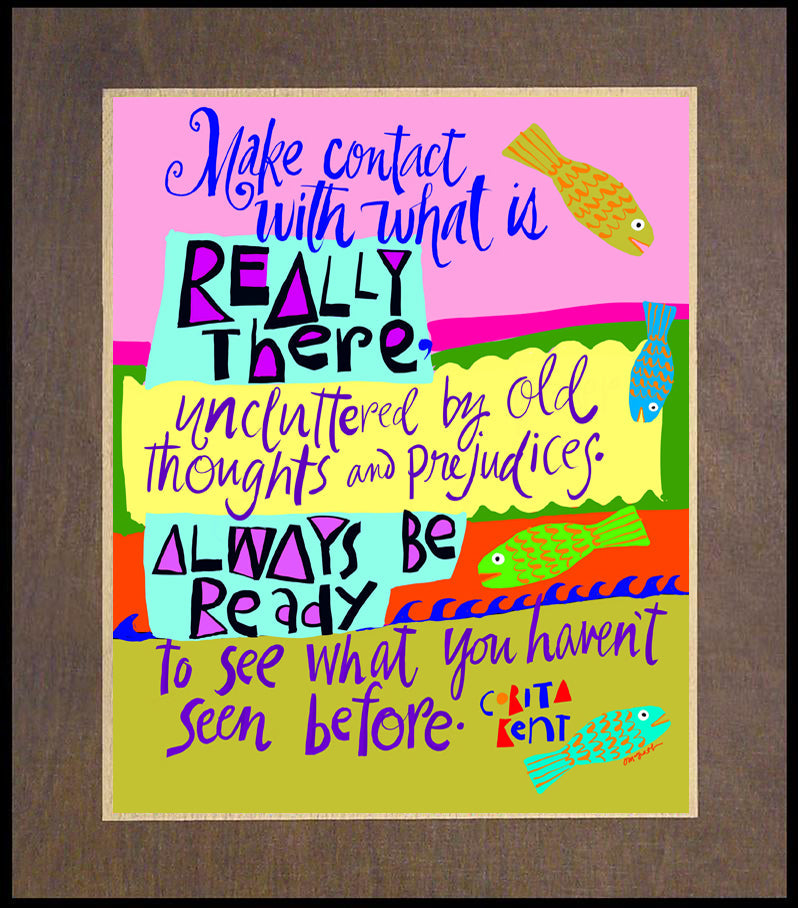 Make contact
with what is
REALLY
There,
uncluttered by old
thoughts and prejudices.
ALWAYS BE
Ready
to see what you haven't
seen before.
CORITA
Kent